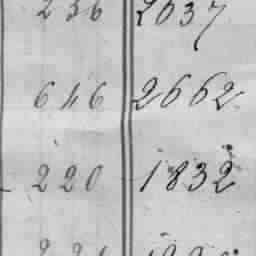 236 2037
646 2662
220 1832